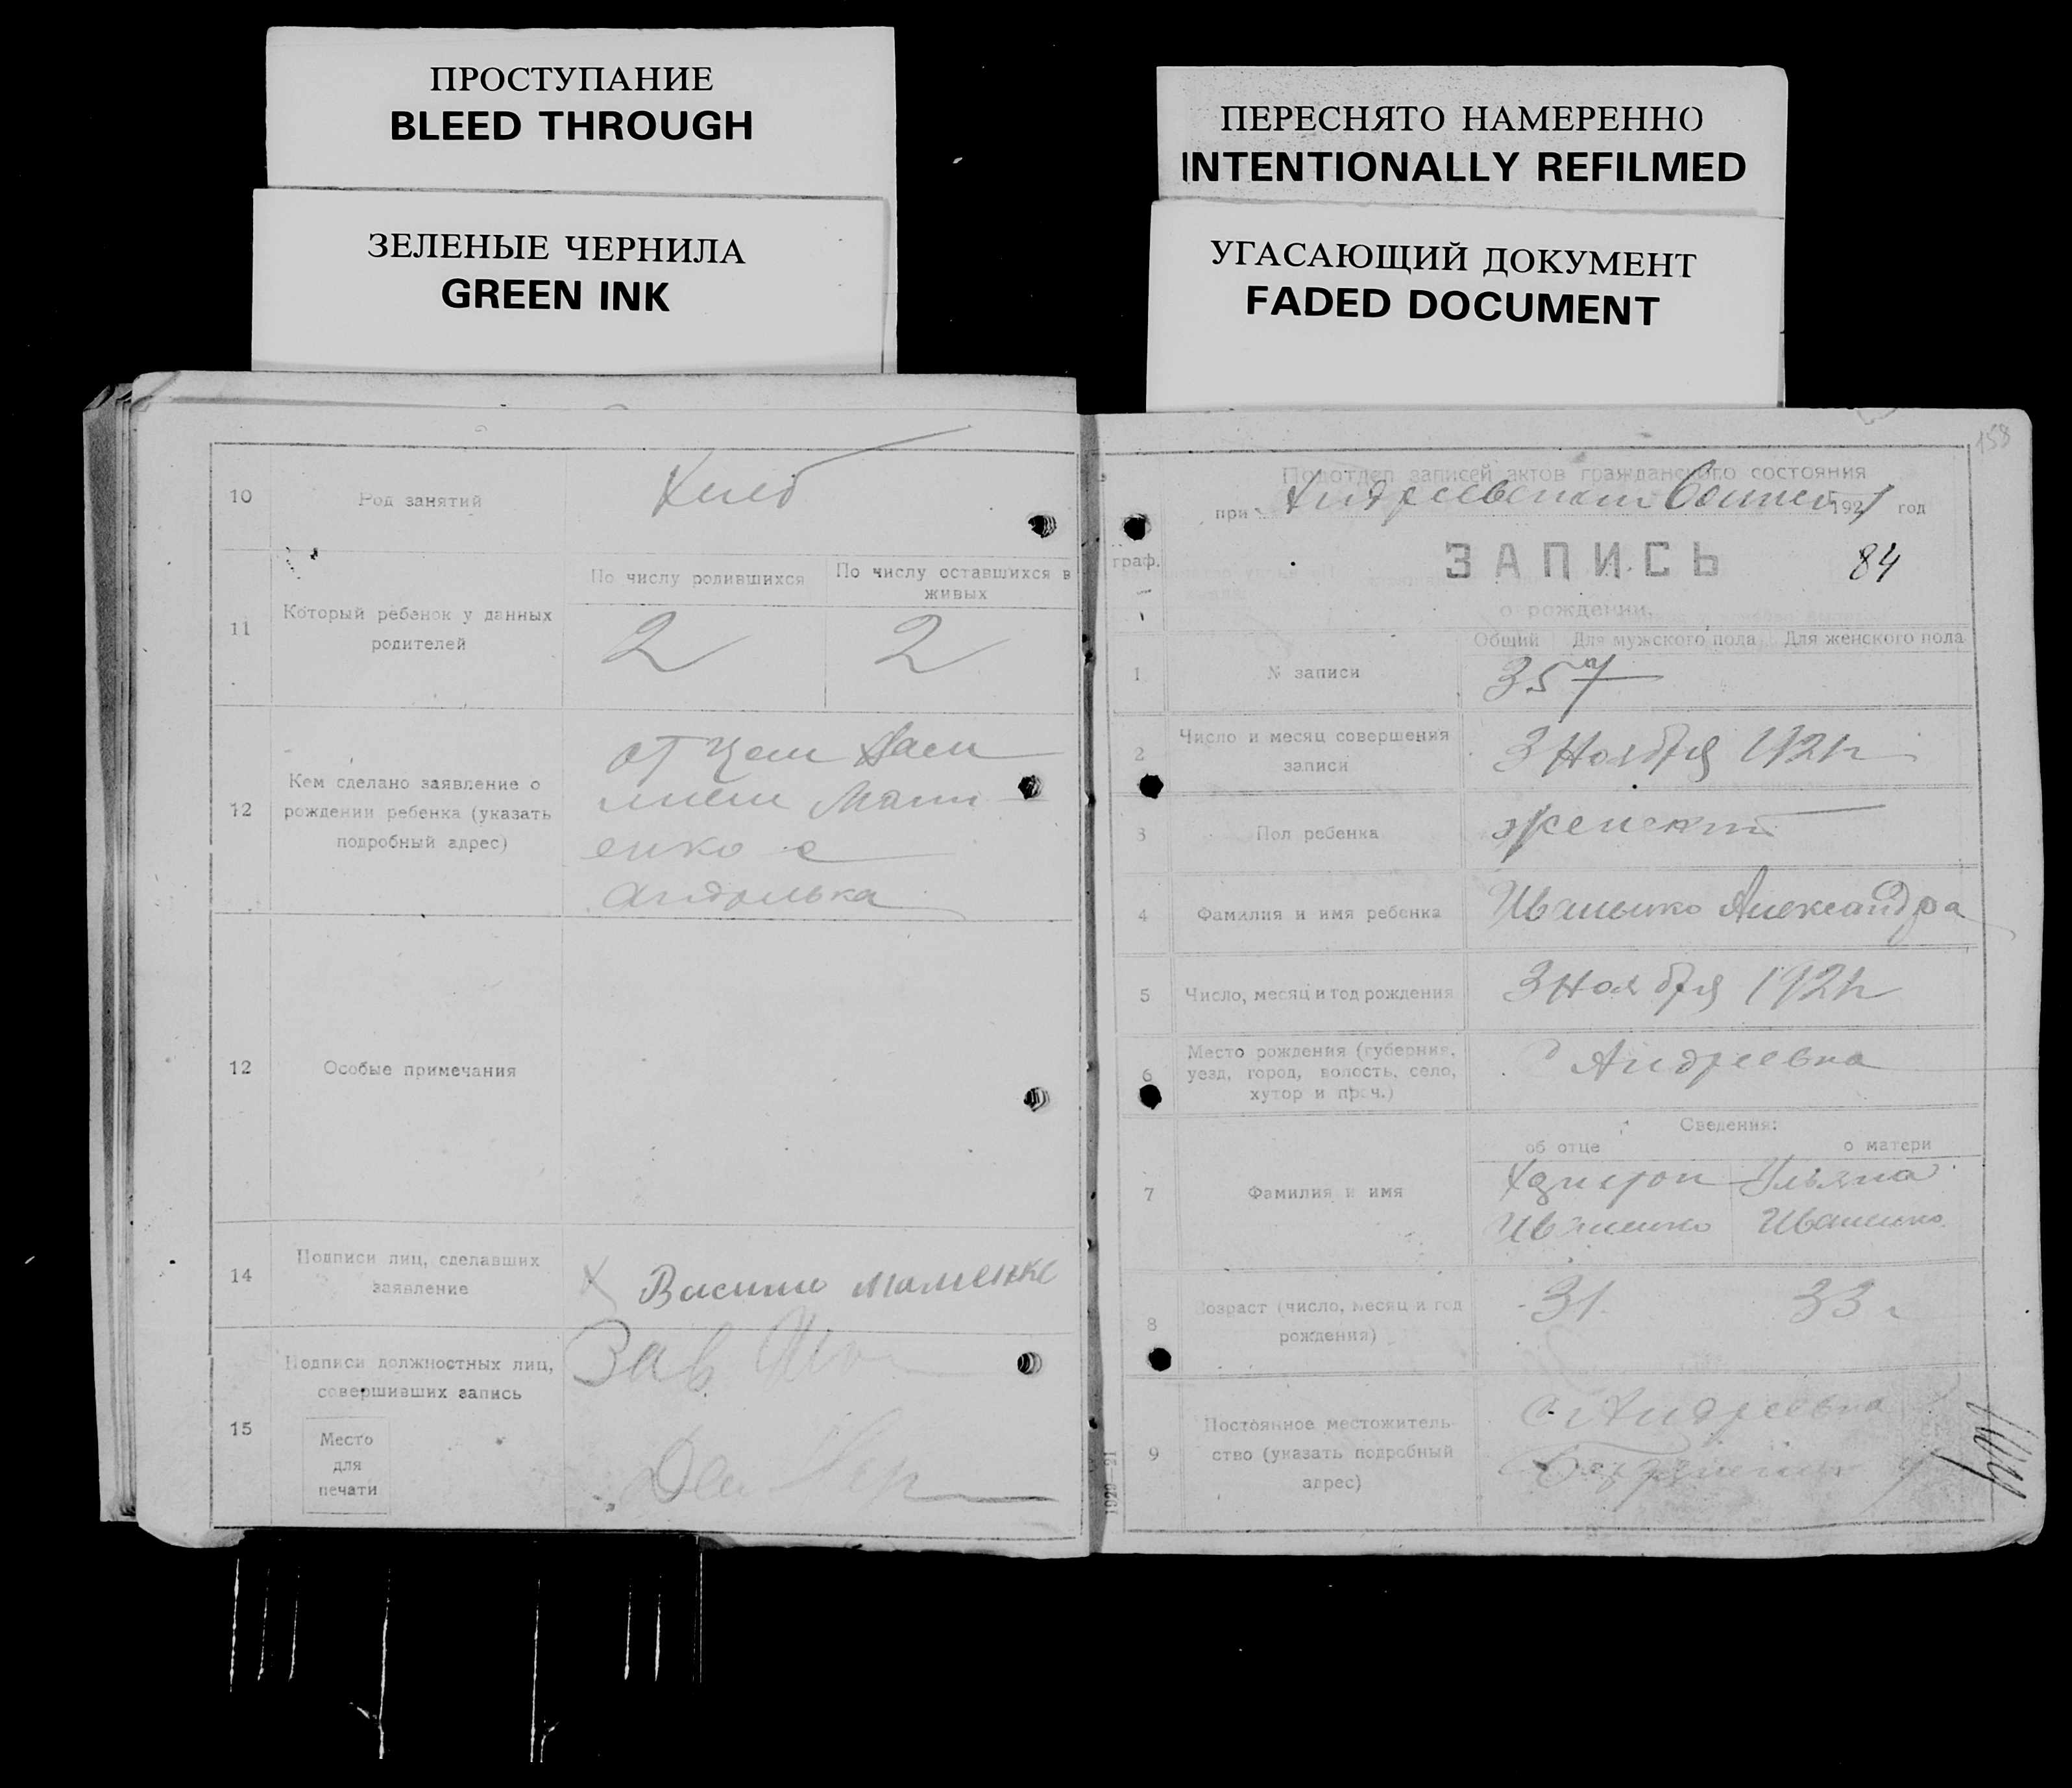 ПРОСТУПАНИЕ
BLEED THROUGH
ЗЕЛЕНЫЕ ЧЕРНИЛА
GREEN INK
ПЕРЕСНЯТО НАМЕРЕННО
INTENTIONALLY REFILMED
УГАСАЮЩИЙ ДОКУМЕНТ
FADED DOCUMENT
10 Род занятий Хлеб
11 Который ребенок у данных
родителей
По числу родившихся По числу оставшихся в
живых
2 2
12 Кем сделано заявление о
рождении ребенка (указать
подробный адрес)
12 Особые примечания
14 Подписи лиц, сделавших
заявление
15 Подписи должностных лиц,
совершивших запись
Зав
Место
для
печати
158
Подотдел записей актов гражданского состояния
при 1921 год
граф. ЗАПИСЬ 84
о рождении.
Общий Для мужского пола Для женского пола
1 № записи 357
2 Число и месяц совершения
записи
3 Ноября 1921 г
3 Пол ребенка женский
4 Фамилия и имя ребенка Иваненко Александра
5 Число, месяц и год рождения 3 Ноября 1921 г
6 Место рождения (губерния,
уезд, город, волость, село,
хутор и проч.)
с Андреевка
Сведения:
об отце о матери
7 Фамилия и имя
Ульяна
Иваненко Иваненко
8 Возраст (число, месяц и год
рождения)
31 33 г
9 Постоянное местожитель-
ство (указать подробный
адрес)
с. Андреевка
1920—21